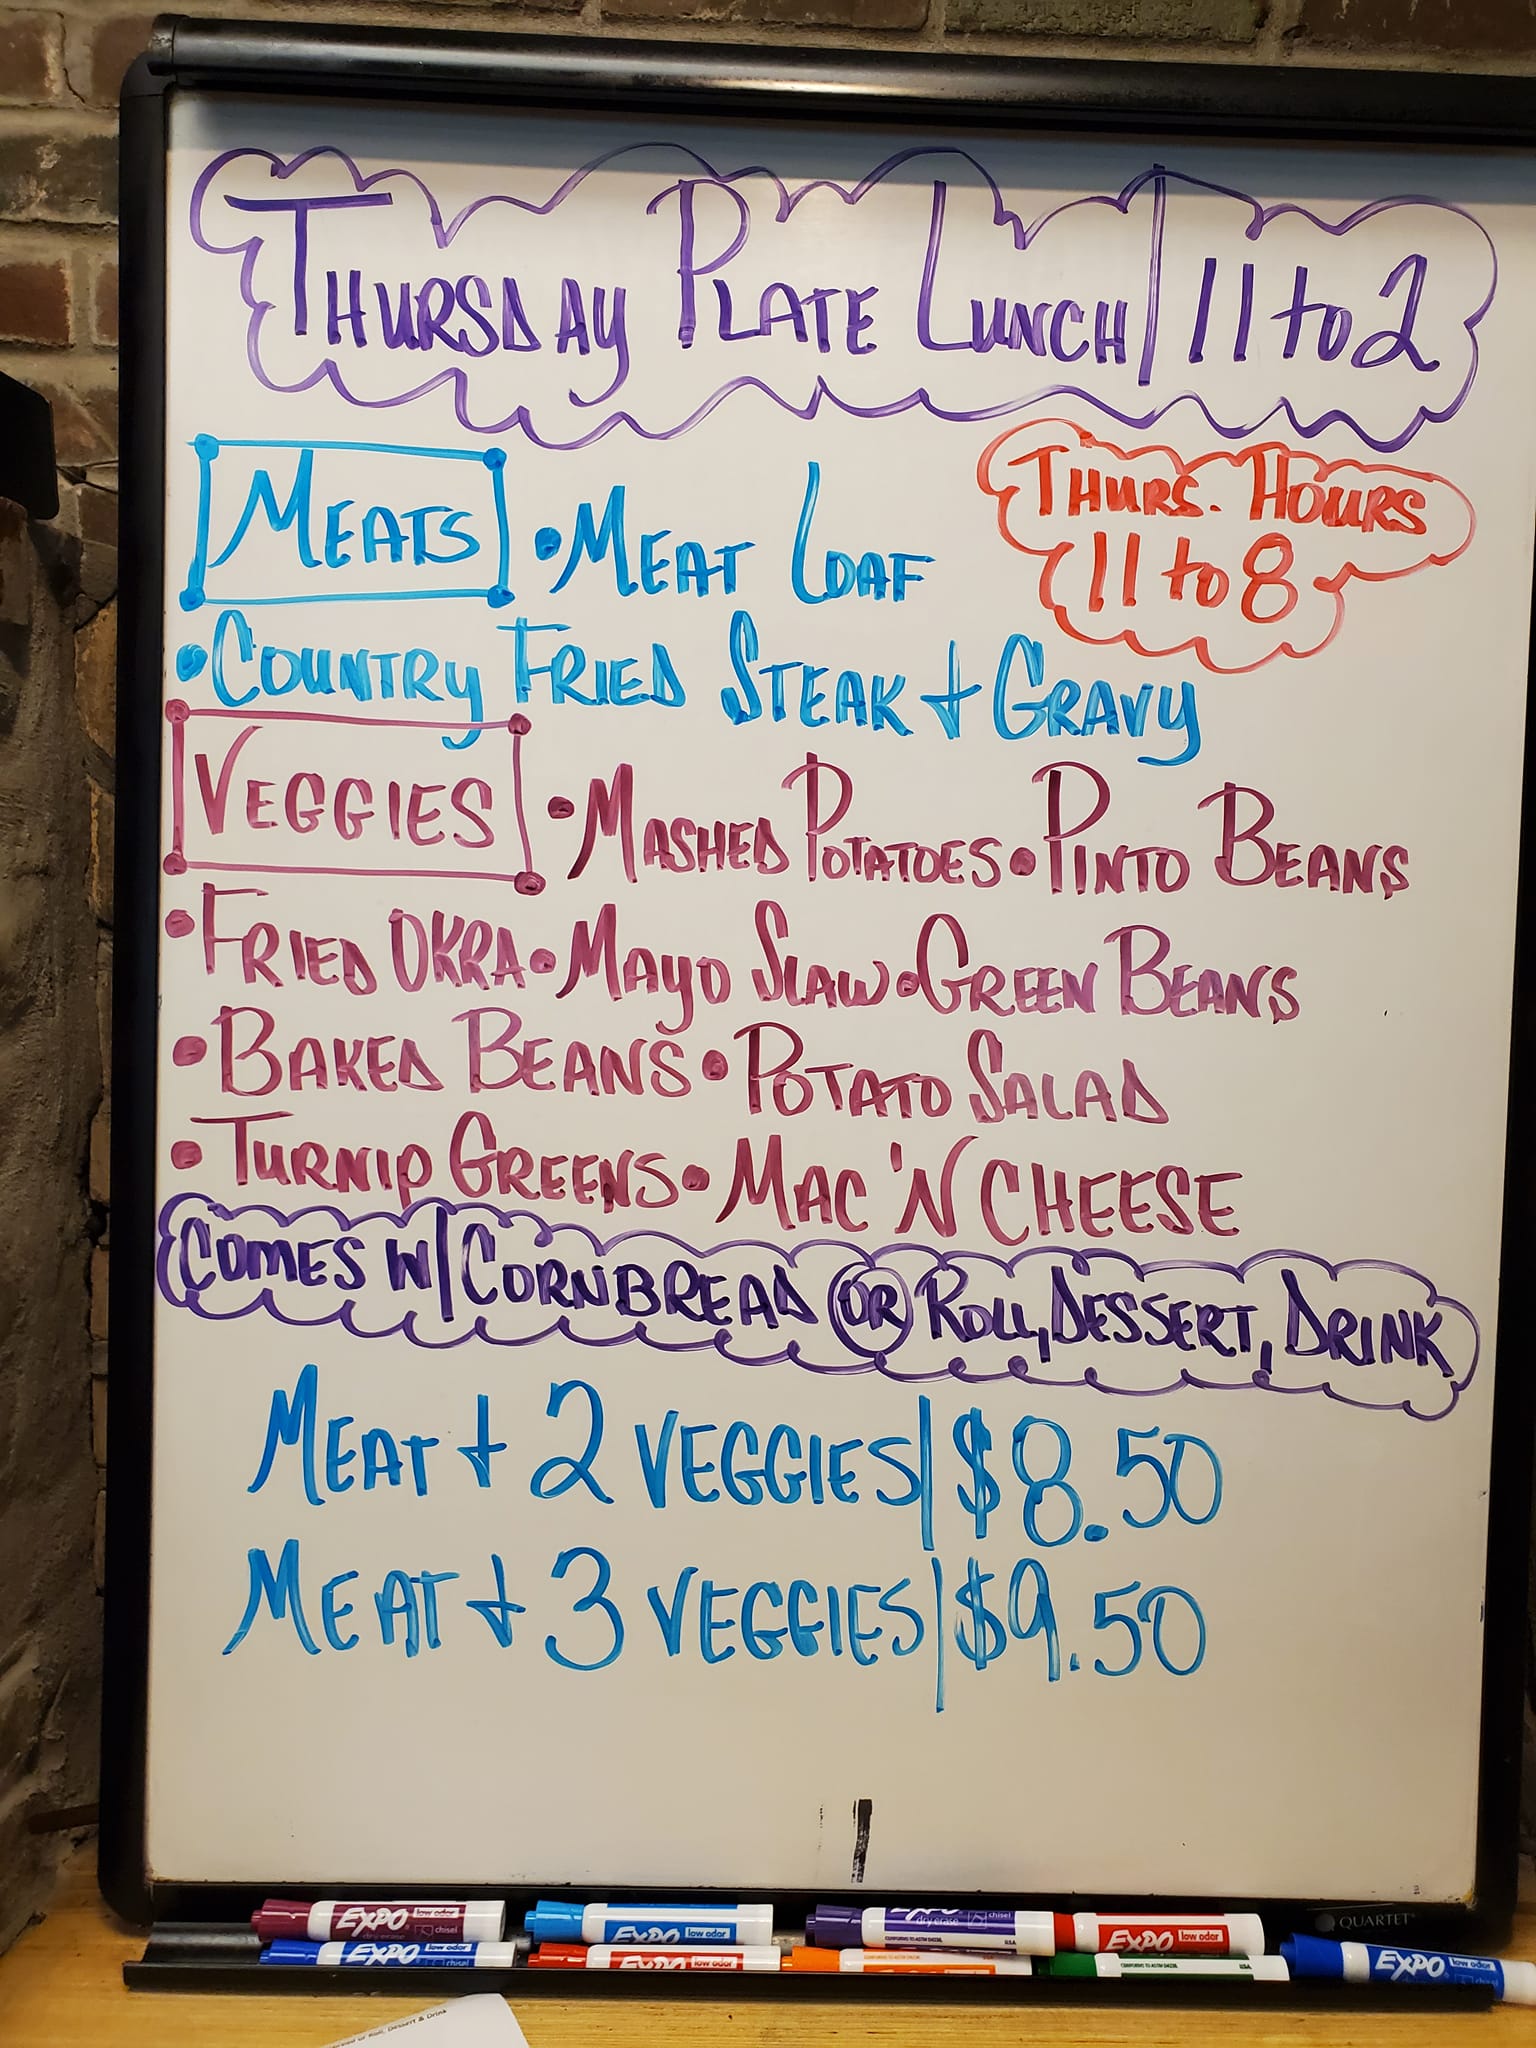 THURSDAY PLATE LUNCH | 11 to 2
THURS. HOURS
11 to 8
MEATS • MEAT LOAF
• COUNTRY FRIED STEAK + GRAVY
VEGGIES • MASHED POTATOES • PINTO BEANS
• FRIED OKRA • MAYO SLAW • GREEN BEANS
• BAKED BEANS • POTATO SALAD
• TURNIP GREENS • MAC 'N CHEESE
COMES W/ CORNBREAD OR ROLL, DESSERT, DRINK
MEAT + 2 VEGGIES | $8.50
MEAT + 3 VEGGIES | $9.50
QUARTET
EXPO low odor dry erase chisel
EXPO low odor
EXPO dry erase chisel USA
EXPO low odor
EXPO low odor chisel
EXPO low odor
USA
EXPO low odor
Roll, Dessert & Drink